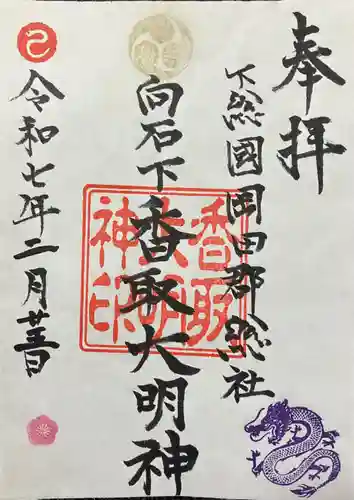 奉拝
下総國岡田郡総社
向石下香取大明神
香取大明神印
令和七年二月廿一日
巳